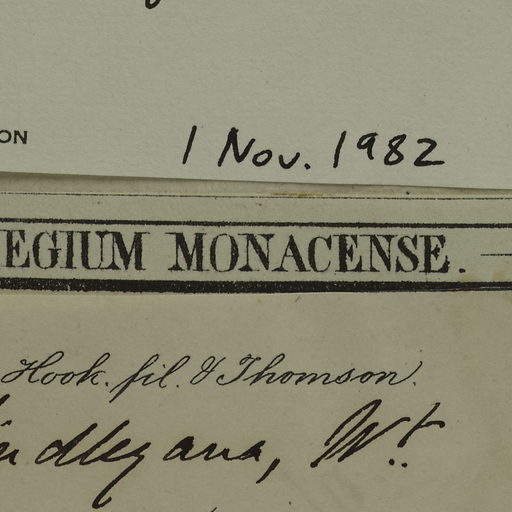 ON
1 Nov. 1982
EGIUM MONACENSE.
Hook. fil. & Thomson.
indleyana, Wt.